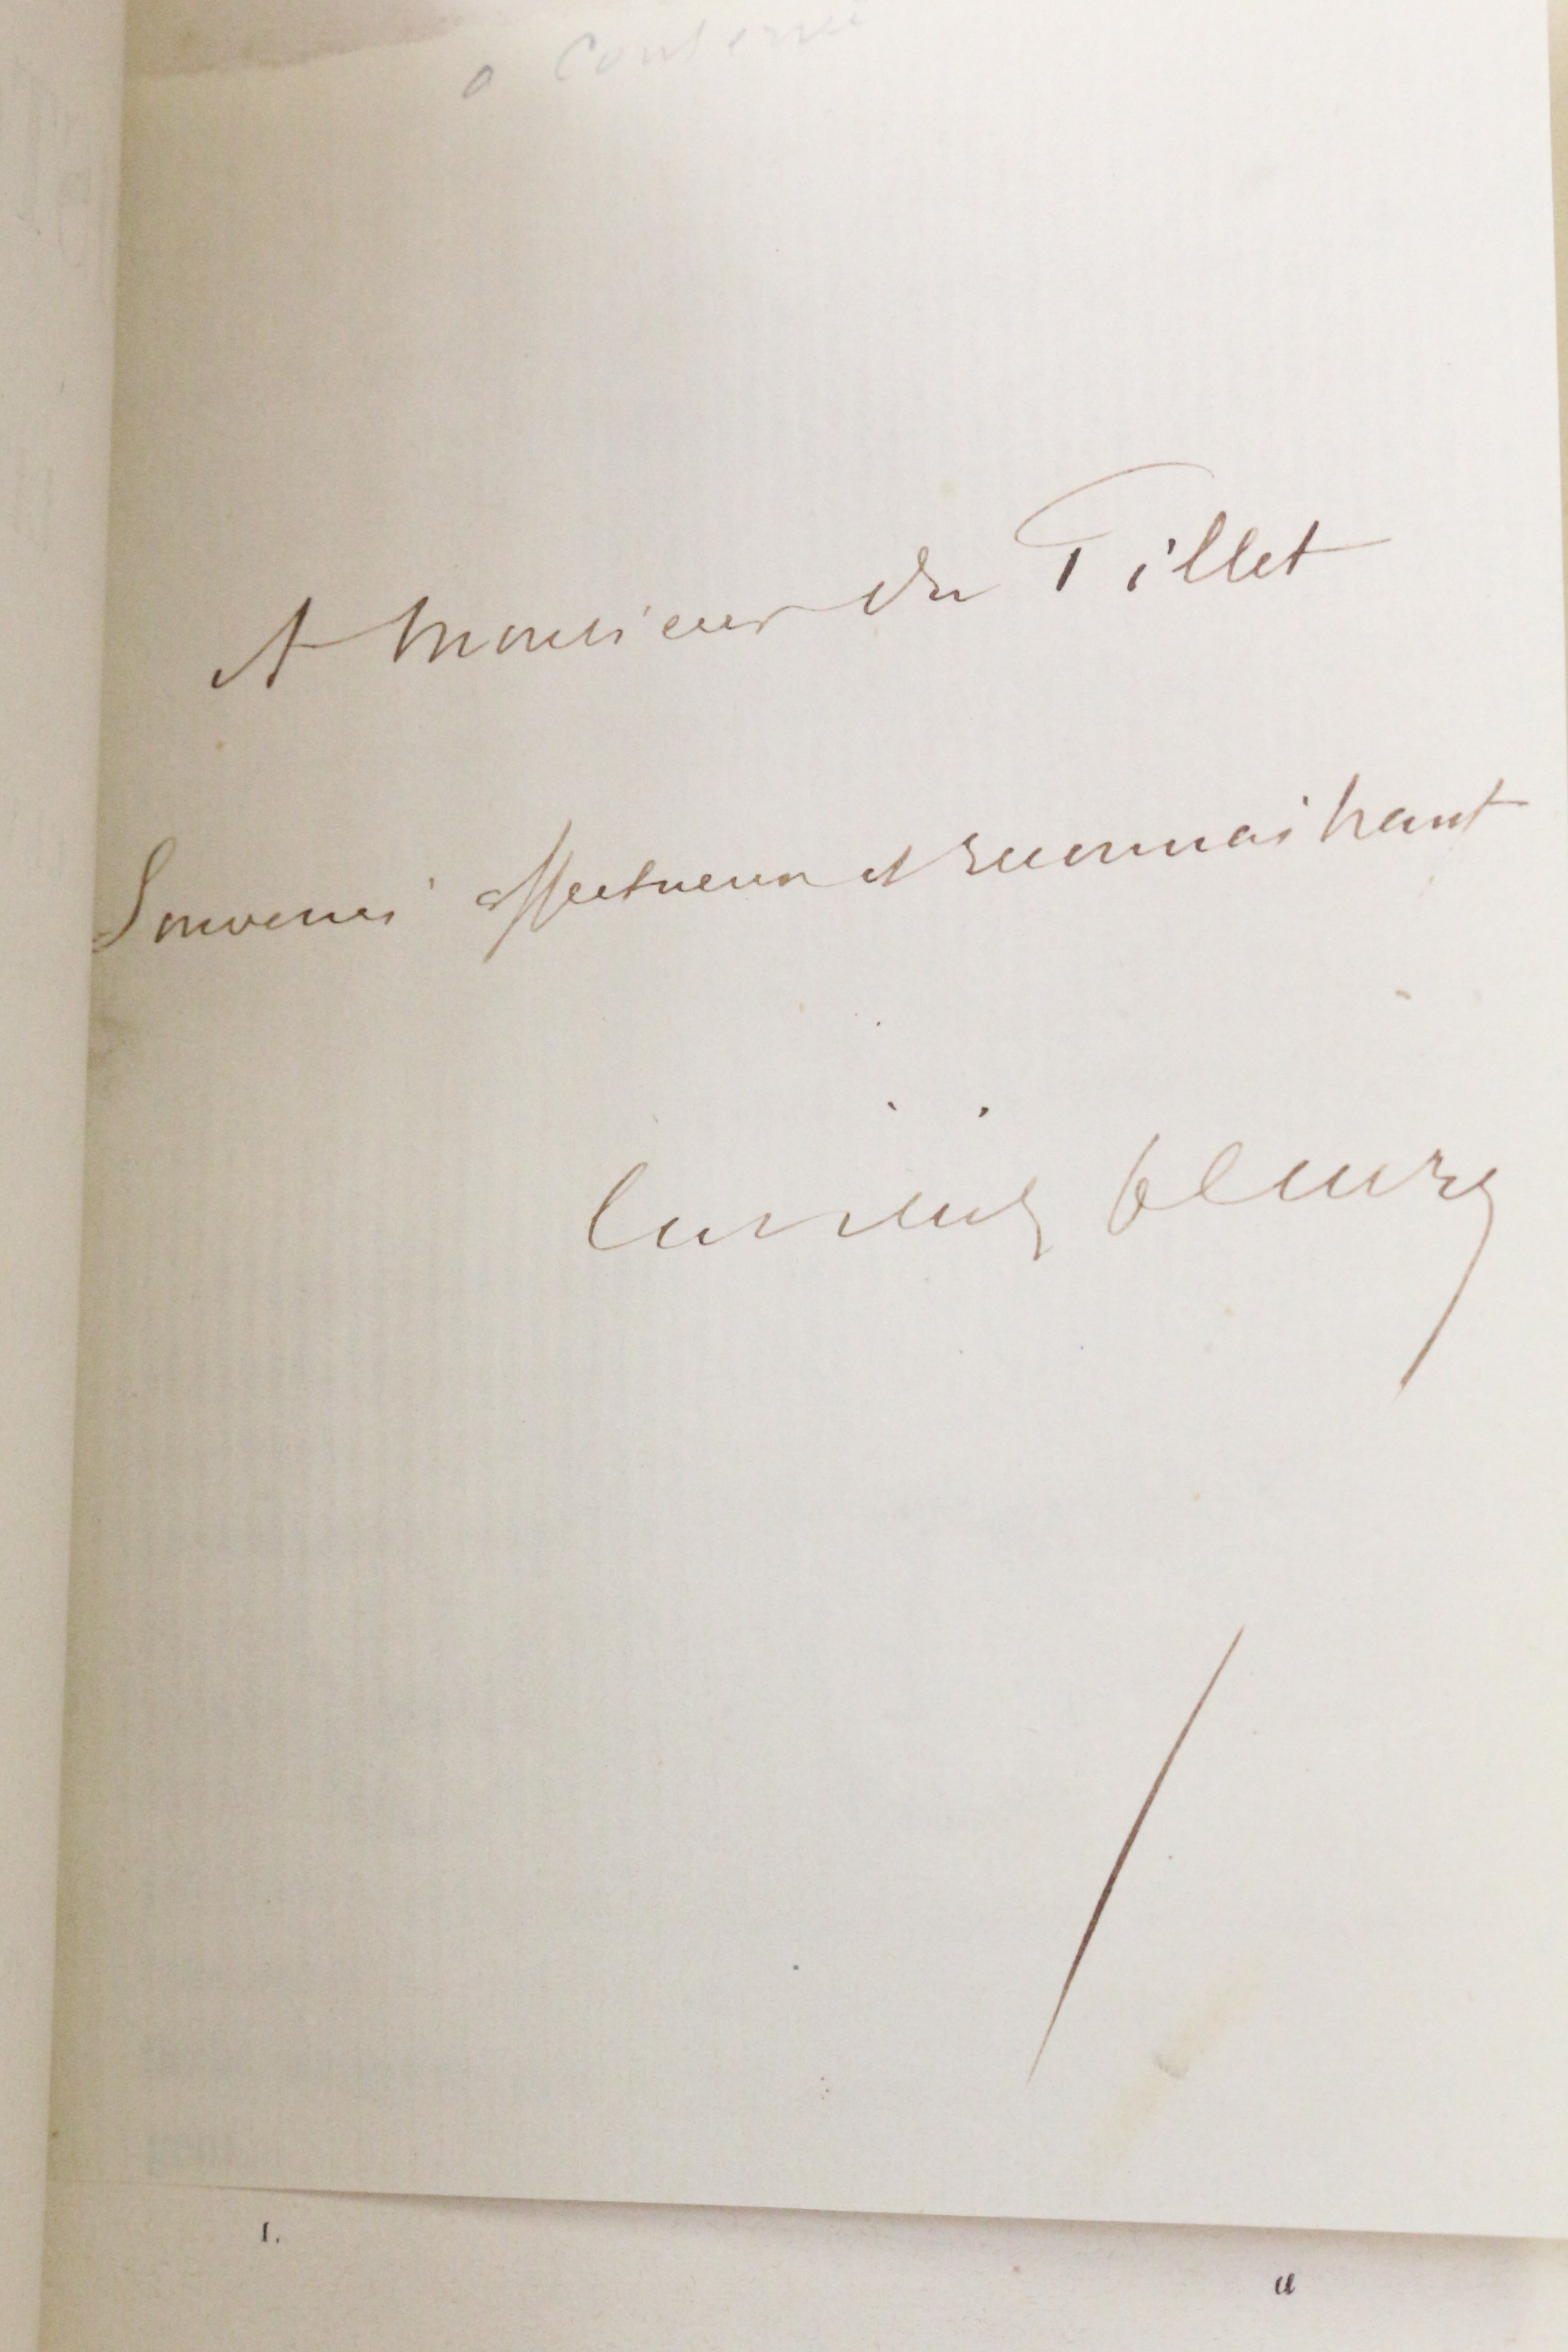 a conserver
A Monsieur du Tillet
Souvenir affectueux et reconnaissant
Cuvillier Fleury
I.
a